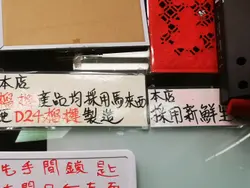 本店
榴槤產品均採用馬來西
亞D24榴槤製造
本店
採用新鮮
洗手間鎖匙